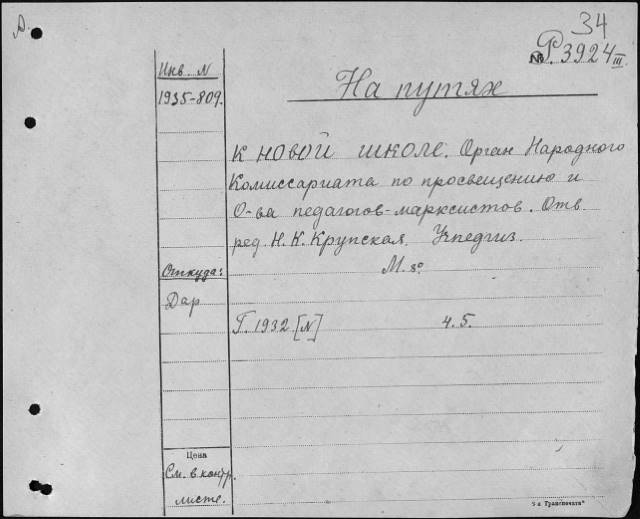 Д.
34
№ P. 3924 III
Инв. N
1935-809.
На путях
к новой школе. Орган Народного
Комиссариата по просвещению и
О-ва педагогов-марксистов. Отв
ред. Н. К. Крупская. Учпедгиз.
М. 8º
Откуда:
Дар
Г. 1932 [N] 4. 5.
Цена
См. в контр.
листе.
"Транспечати"